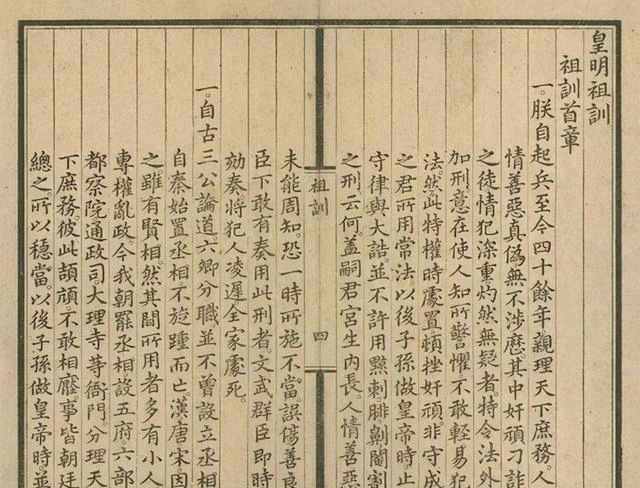 皇明祖訓
祖訓首章
一。朕自起兵至今四十餘年。親理天下庶務。人
情善惡真偽。無不涉歷。其中奸頑刁詐
之徒。情犯深重。灼然無疑者。特令法外
加刑。意在使人知所警懼。不敢輕易犯
法。然此特權時處置。頓挫奸頑。非守成
之君所用常法。以後子孫做皇帝時。止
守律與大誥。並不許用黥刺。腓劓閹割
之刑。云何。蓋嗣君宮生內長。人情善惡
祖訓
四
未能周知。恐一時所施不當。誤傷善良
臣下敢有奏用此刑者。文武群臣即時
劾奏。將犯人凌遲。全家處死。
一。自古三公論道。六卿分職。並不曾設立丞相
自秦始置丞相。不旋踵而亡。漢唐宋因
之。雖有賢相。然其間所用者。多有小人
專權亂政。今我朝罷丞相。設五府。六部
都察院。通政司。大理寺等衙門。分理天
下庶務。彼此頡頏。不敢相壓。事皆朝廷
總之。所以穩當。以後子孫做皇帝時。並